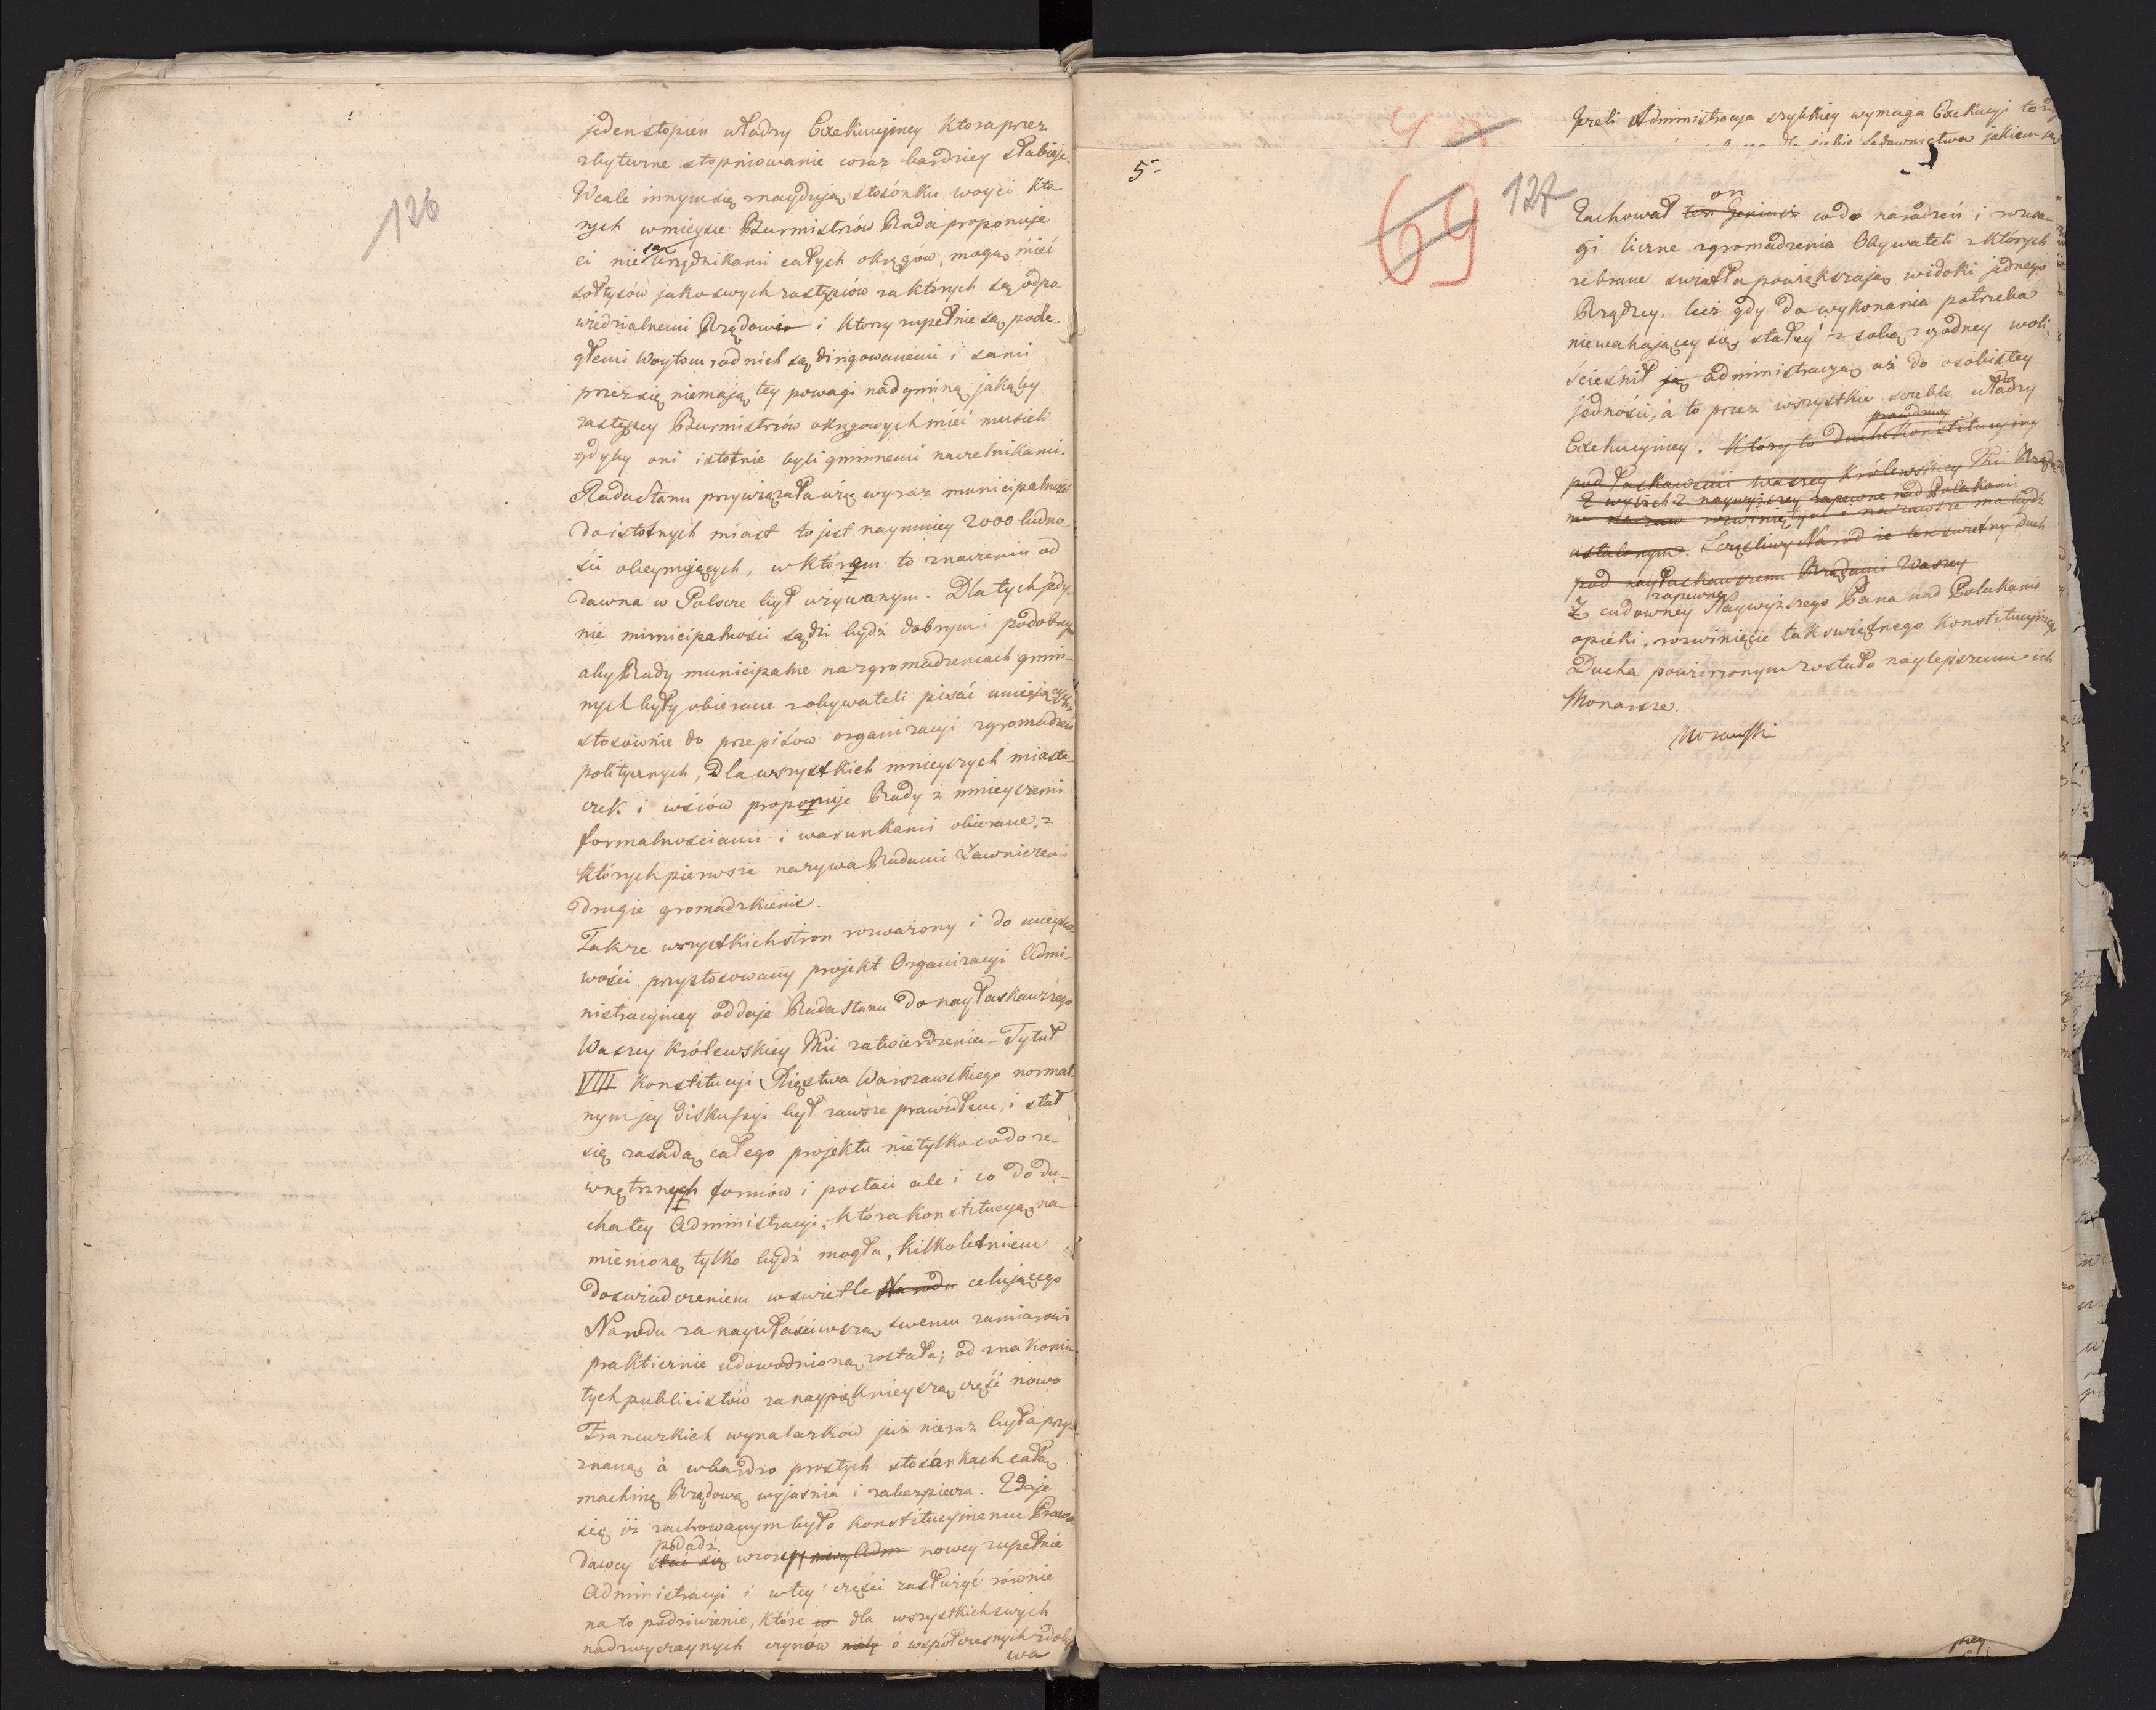 126
jeden stopień władzy Exekucyiney ktora przez
zbyteczne stopniowanie coraz bardziey słabieje.
Wcale innym się znaydują stosónku woyci któ-
rych w mieysce Burmistrzów Rada proponuje
ci nie są urzędnikami całych okręgów, mogą mieć
sołtysów jako swych zastępców za których są odpo
wiedzialnemi Rządowi i ktorzy zupełnie są podle-
głemi Woytom, od nich są dirigowanemi i sami
przez się niemają tey powagi nad gminą jakąby
zastępcy Burmistrzów okręgowych mieć musieli
gdyby oni istotnie byli gminnemi naczelnikami.
Rada Stanu przywiązała więc wyraz municipalność
do istotnych miast to jest naymniey 2000 ludno-
ści obeymujących, w którem to znaczeniu od
dawna w Polscze był używanym. Dla tych jedy-
nie municipalności sądzi bydź dobrym i podobnym
aby Rady municipalne na zgromadzeniach gmin-
nych były obierane z obywateli pisać umiejących
stosownie do przepisów organizacyi zgromadzeń
politycznych, Dla wszystkich mnieyszych miaste-
czek i wsiów proponuje Rady z mnieyszemi
formalnościami i warunkami obierane, z
których pierwsze nazywa Radami Ławniczemi
drugie gromadzkiemi.
Tak ze wszystkich stron rozważony i do mieysco-
wości przystosowany projekt Organizacyi Admi-
nistracyiney oddaje Rada Stanu do nayłaskawszego
Waszey Królewskiey Mci zatwierdzenia – Tytuł
VIII Konstitucyi Xięstwa Warszawskiego normal-
nym jey diskussyi był zawsze prawidłem, i stał
się zasadą całego projektu nietylko co do ze-
wnętrznych formów i postaci ale i co do du-
cha tey Administracyi, która Konstitucyą na-
mienioną tylko bydź mogła, kilkoletniem
doswiadczeniem w swietle Narodu celującego
Narodu za naywłaściwszą swemu zamiarowi
praktycznie udowodnioną została; od znakomi-
tych publicistów za naypięknieyszą część nowo
Francuzkich wynalazków już nieraz była przy-
znaną, a w bardzo prostych stosónkach całą
machinę Rządową wyjaśnia i zabezpiecza. Zdaje
się iż zachowanym było Konstitucyinemu Prawo-
podadź
dawcy stać się wzor nowey zupełnie
Administracyi i w tey części zasłużyć równie
na to podziwienie, które w dla wszystkich swych
nadzwyczaynych czynów u współczesnych zdoby
wa
4
Jezeli Administracya szybkiey wymaga Exekucyi to
dla siebie Sądownictwa jakiem są
5
69
127
on
Zachował ten Geniusz co do naradzeń i rozwa-
gi liczne zgromadzenia Obywateli z których
zebrane swiatła powiększają widoki jednego
Rządzcy. lecz gdy do wykonania potrzeba
niewahającey się stałey z sobą zgodney woli,
ścieśnił ją administracyą aż do osobistey
jedności, a to przez wszystkie szczeble władzy
prawdziwy
Exekucyiney. Który to duch Konstitucyiny
pod łaskawemi Waszey Królewskiey Mci Rząda
Z wyższych Z naywyższey zapewne nad Polakami
rozwiniętym i na zawsze ma bydź
ustalonym. Szczęśliwy Naród że ten swietny Duch
pod nayłaskawszemi Rządami Waszey
zapewne
Z cudowney Naywyższego Pana nad Polakami
opieki, rozwinięcie tak swietnego Konstitucyinego
Ducha powierzonym zostało naylepszemu ich
Monarsze.
Morawski
przy